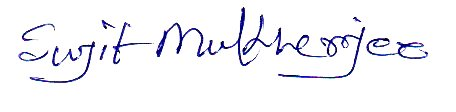 Surjit Mukherjee